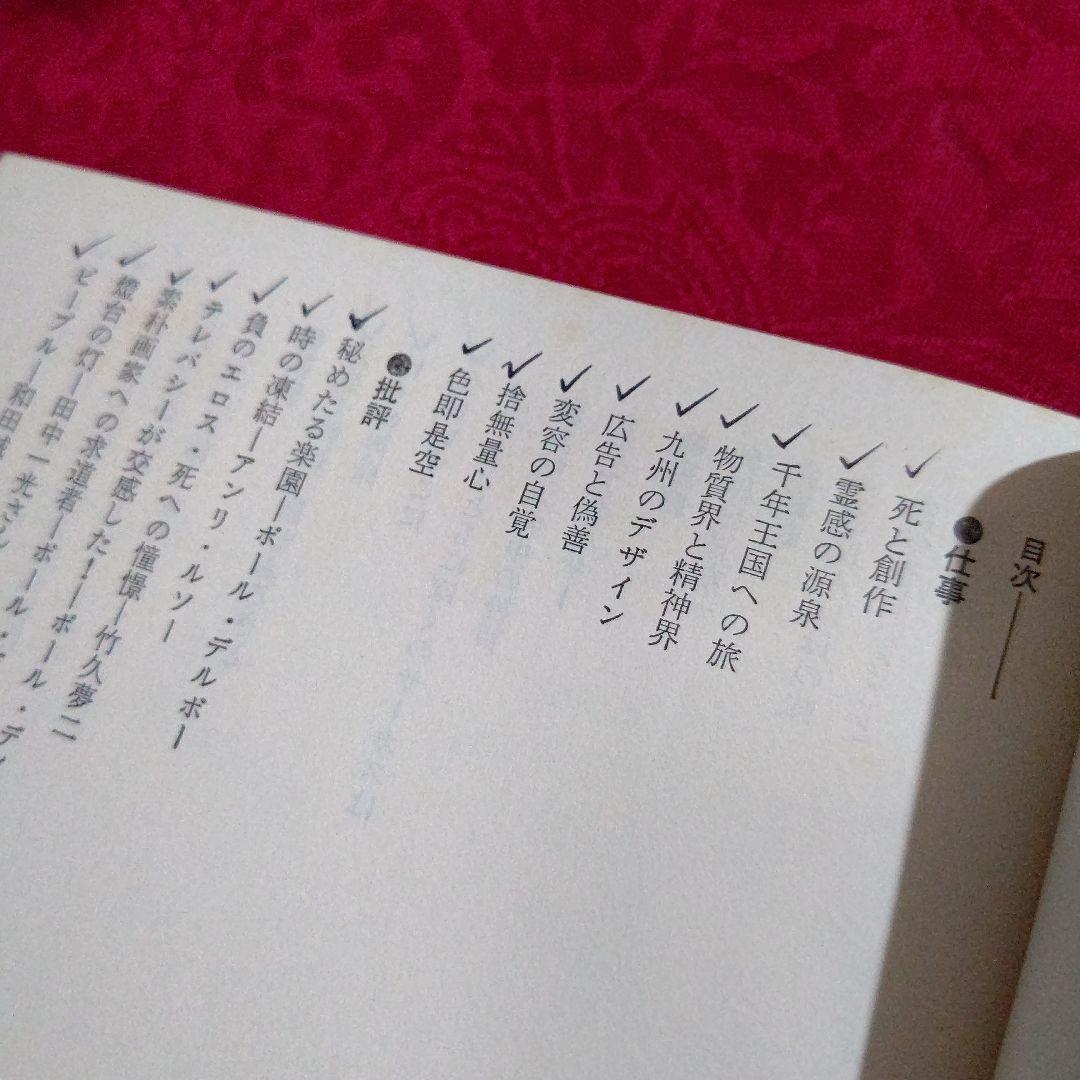 目次
●仕事
✓死と創作
✓霊感の源泉
✓千年王国への旅
✓物質界と精神界
✓九州のデザイン
✓広告と偽善
✓変容の自覚
✓捨無量心
✓色即是空
●批評
✓秘めたる楽園―ポール・デルボー
✓時の凍結―アンリ・ルソー
✓負のエロス・死への憧憬―竹久夢二
✓テレパシーが交感した!―ポール・デ
✓素朴画家への求道者―
✓燈台の灯―田中一光さん
✓ピープル―和田誠